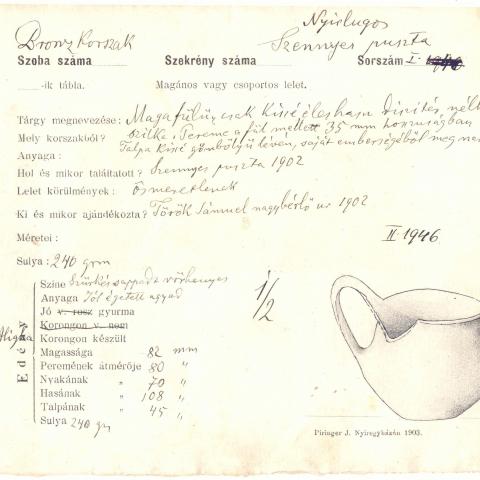 Bronz Korszak
Nyirlugos
Szennyes puszta
Szoba száma
Szekrény száma
Sorszám I.
-ik tábla.
Magános vagy csoportos lelet.
Tárgy megnevezése: Magafülü, csek Kissé éleshasu díszítés nélk
Mely korszakból? szilke. Pereme a fül mellett 35 mm hosszuságban
Anyaga: Talpa kissé gömbölyü lévén, saját emberségéből meg nem
Hol és mikor találtatott? Szennyes puszta 1902
Lelet körülmények: Ösmeretlenek
Ki és mikor ajándékozta? Török Sámuel nagybérlő ur 1902
Méretei:
II. 1946.
Sulya: 240 grm
Edény
Szine Szürkés sappadt vörhenyes
Anyaga Jól égetett agyag
Jó v. rosz gyurma
Korongon v. nem
Aligha Korongon készült
Magassága 82 mm
Peremének átmérője 80 "
Nyakának " 70 "
Hasának " 108 "
Talpának " 45 "
Sulya 240 gr
1/2
Piringer J. Nyiregyházán 1903.